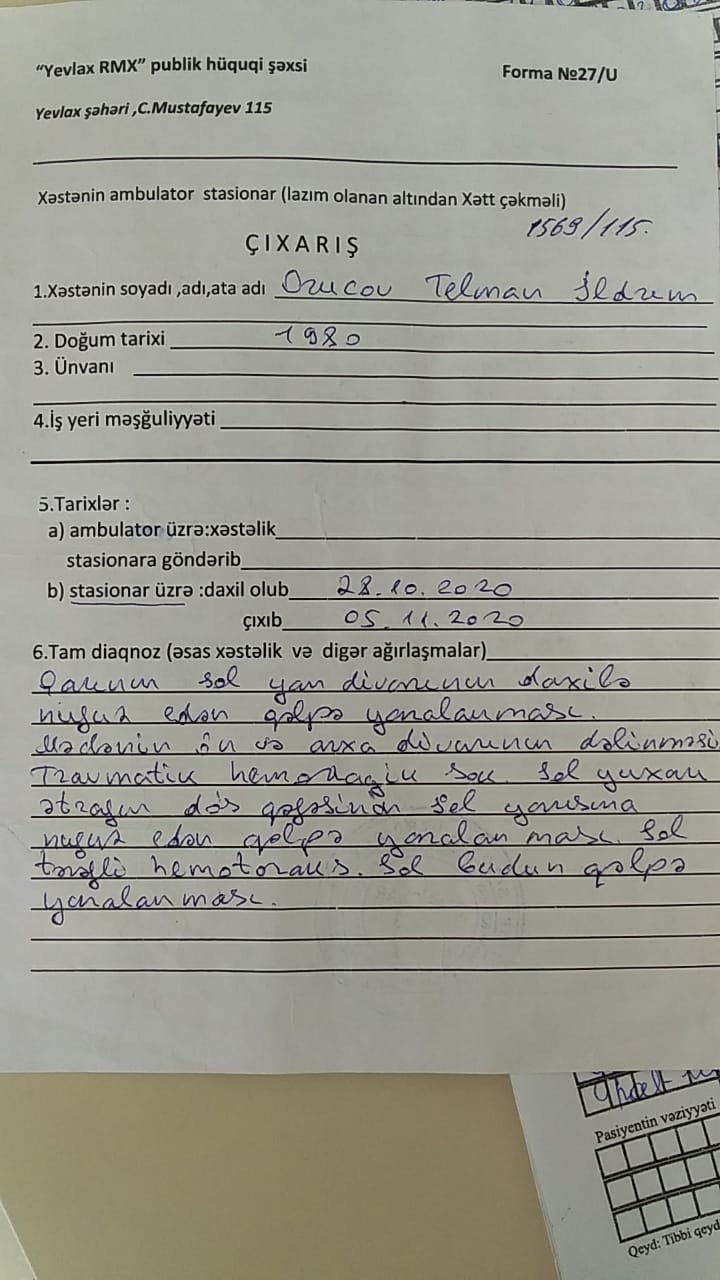 “Yevlax RMX” publik hüquqi şəxsi
Forma №27/U
Yevlax şəhəri ,C.Mustafayev 115
Xəstənin ambulator stasionar (lazım olanan altından Xətt çəkməli)
1569/115.
ÇIXARIŞ
1.Xəstənin soyadı ,adı,ata adı Orucov Telman İldırım
2. Doğum tarixi 1980
3. Ünvanı
4.İş yeri məşğuliyyəti
5.Tarixlər :
a) ambulator üzrə:xəstəlik
stasionara göndərib
b) stasionar üzrə :daxil olub 28.10.2020
çıxıb 05.11.2020
6.Tam diaqnoz (əsas xəstəlik və digər ağırlaşmalar)
Qarının sol yan divarının daxilə
nüfuz edən qəlpə yaralanması.
Mədənin ön və arxa divarının dəlinməsi
Travmatik hemoragik şok. Sol yuxarı
ətrafın döş qəfəsinin sol yarısına
nüfuz edən qəlpə yaralanması. Sol
tərəfli hemotoraks. Sol budun qəlpə
yaralanması.
Pasiyentin vəziyyəti
Qeyd: Tibbi qeyd